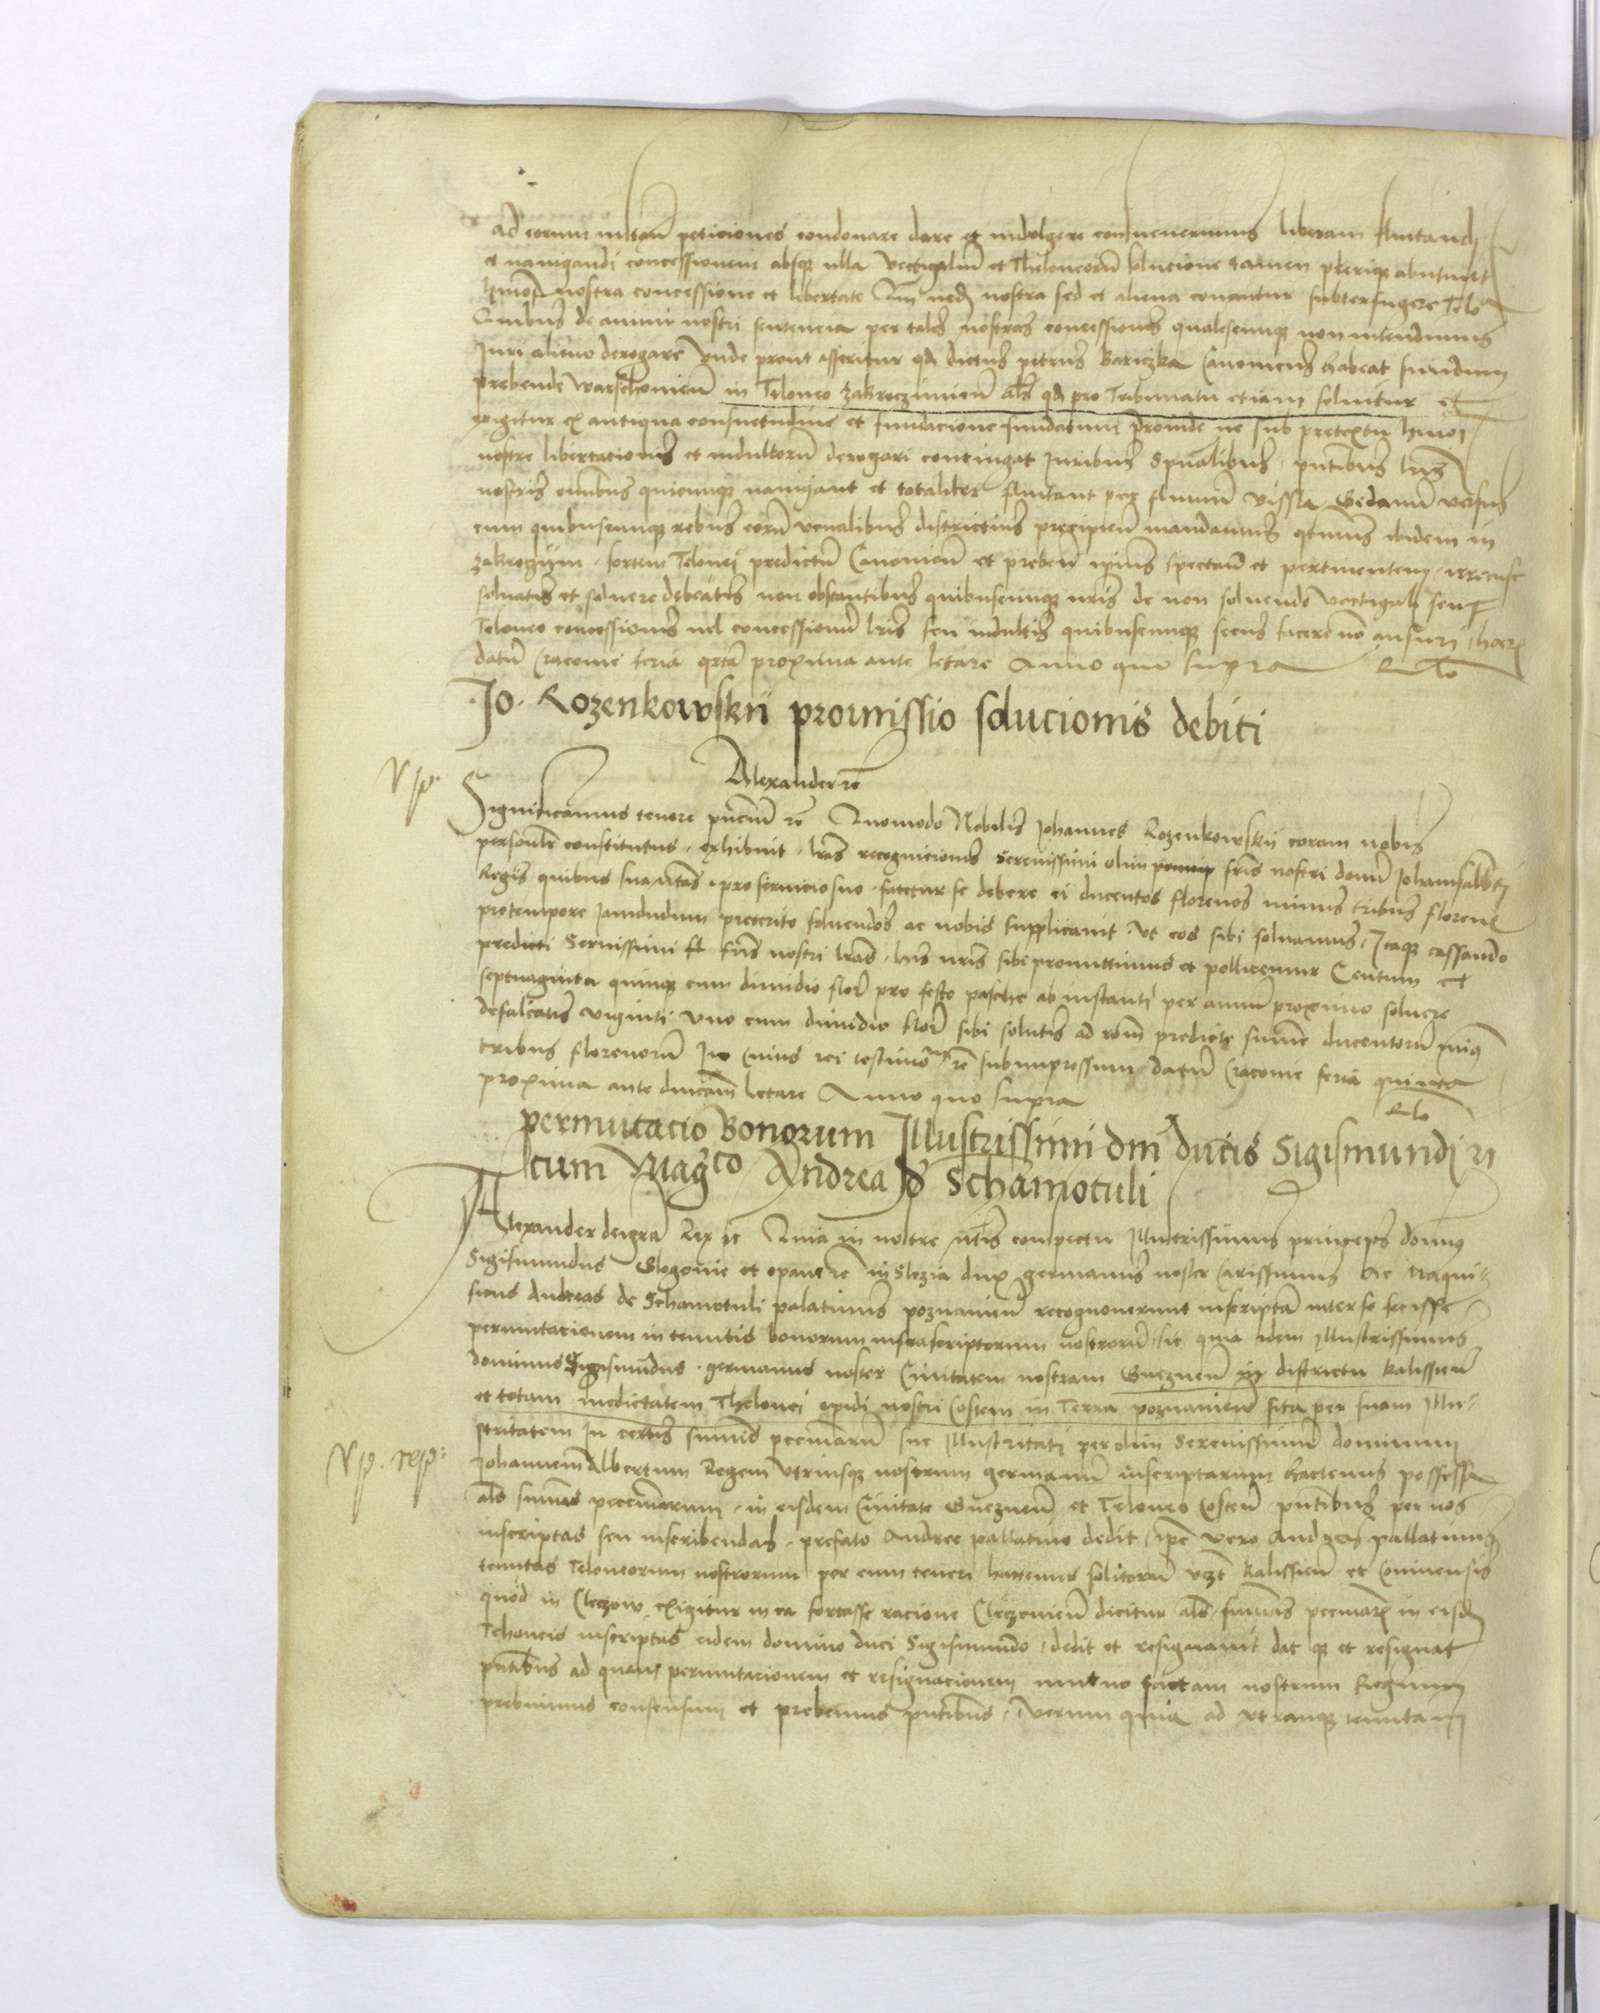 ad eorum peticiones condonare dare et indulgere consueverimus liberam fluitandi
et navigandi concessionem absque ulla vectigaliū et Theloneorū solucione tamen plerique abutunt
hmōi nostra concessione et libertate nedū nostra sed et aliena conantur subterfugere Telo
Quibus de animi nostri sentencia per tales nostras concessiones qualescunque non intendimus
Juri alieno derogare Unde prout asseritur qd dictus petrus Bariczka Canonicus habeat fundum
prebende warschovieñ in Teloneo zakroczimieñ als qd pro Tribunatu etiam solvitur et
exigitur ex antiqua consuetudine et fundacione fundatum proinde ne sub pretextu hmōi
nostre libertacionis et indultorū derogari contingat Juribus Spūalibus pñtibus lrīs
nostris omībus quicunque navigant et totaliter fluitant per fluviū vissla Gedanū versus
cum quibuscunque rebus eorū venalibus districtius precipieñ mandamus qtinus ibidem in
zakroczym sortem Telonei predictū Canonicū et prebeñ ipius spectañ et pertinentem irrecuse
solvatis et solvere debeatis non obstantibus quibuscunque nrīs de non solvendo vectigali seu
Teloneo concessionis vel concessionū lrīs seu indultis quibuscunque secus facere nō ausuri har
datū Cracovie feria qrta proxima ante letare Anno quo supra Rlo
Jo. Rozenkowskii promissio solucionis debiti
Alexander rc
Significamus tenore pñciū rc Quomodo Nobilis Johannes Rozenkowskii coram nobis
personlr constitutus exhibuit lrās recognicionis Serenissimi olim frīs nostri domī Johannisalbti
Regis quibus sua mtas pro servicio suo fatetur se debere ei ducentos florenos minus tribus floreñ
pro tempore Jamdudum preterito solvendos ac nobis supplicavit Ut eos sibi solvamus Itaque cassando
predicti Serenissimi frīs nostri lrās lrīs nrīs sibi promittimus et pollicemur Centum et
septuaginta quinque cum dimidio flor pro festo pasche ab instanti per annū proximo solvere
defalcatis viginti uno cum dimidio flor sibi solutis ad rōm predicte summe ducentorū minus
tribus florenorū In cuius rei testimō rc subimpressum datū Cracovie feria quinta
proxima ante dnicam letare Anno quo supra
Rlo
permutacio Bonorum Illustrissimi dm ducis Sigismundi rc
cum Magco Andrea de Schamotuli
Alexander dei gra Rex rc Quia in nostre mtis conspectu Illustrissimus princeps domīus
Sigismundus Glogovie et opavie rc in Slezia dux germanus noster Carissimus Ac Magni-
ficus Andreas de Schamotuli palatinus poznanieñ recognoverunt inscripta inter se fecisse
permutacionem in tenutis bonorum infrascriptorum nostrorū sic quia idem Illustrissimus
dominus Sigismūdus germanus noster Civitatem nostram Gnezneñ in districtu Kalissieñ
et totam medietatem Thelonei opidi nostri Costen in Terra poznanieñ sita per suam Illu-
stritatem In certis summis pecuniarū sue Illustritati per olim Serenissimū dominum
Johannem Albertum Regem utriusque nostrum germanū inscriptarum hactenus possessa
als summas pecuniarum in eisdem Civitate Gnezneñ et Teloneo Costeñ pñtibus per nos
inscriptas seu inscribendas prefato Andree pallatino dedit ipe vero Andreas pallatinus
tenutas Teloneorum nostrorum per eum teneri hactenus solitorū vzt Kalissieñ et Coninensis
quod in Cleczow exigitur in ea fortasse racione Cleczevieñ dicitur als summas pecuniarū in eisdē
Teloneis inscriptas eidem domino duci Sigismundo dedit et resignavit dat que et resignat
pñtibus ad quam permutacionem et resignacionem mutuo factam nostrum Regium
prebuimus consensum et prebemus pñtibus Verum quia ad utranque tenutam